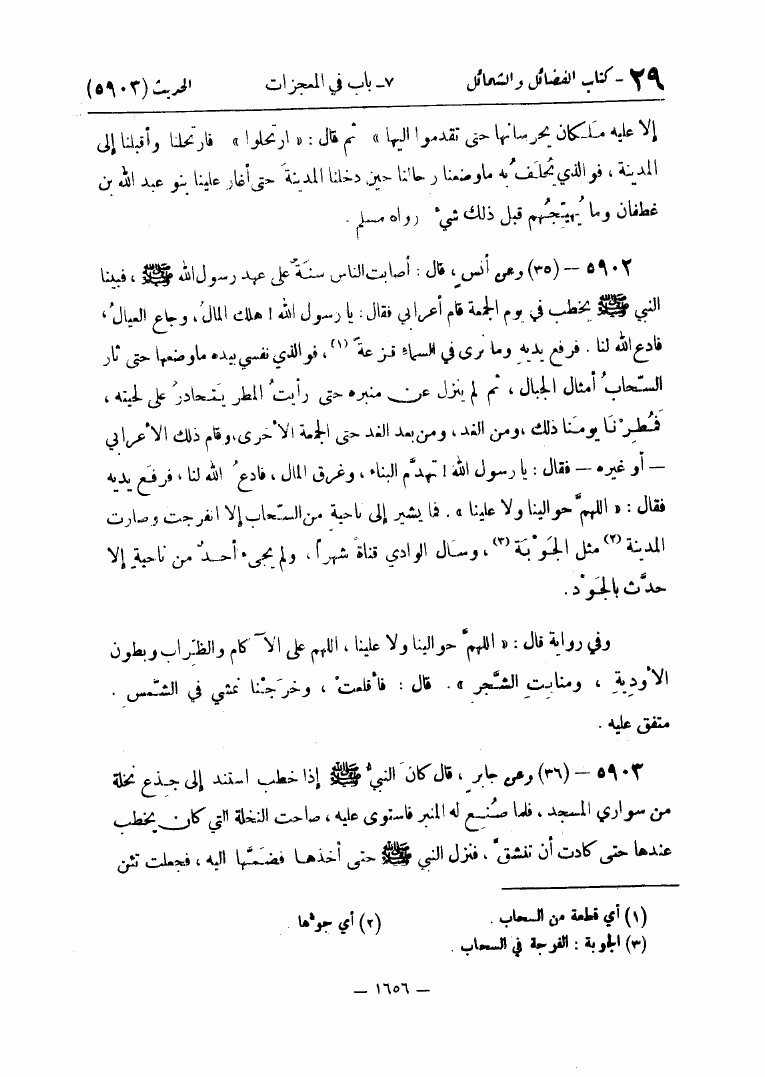 ٢٩ - كتاب الفضائل والشمائل ٧- باب في المعجزات الحديث (٥٩٠٣)
إلا عليه مَلَكان يحرسانها حتى تقدموا إليها » ثم قال : « ارتحلوا » فارتحلنا وأقبلنا إلى
المدينة ، فوالذي يُحلَفُ به ماوضعنا رحالنا حين دخلنا المدينةَ حتى أغار علينا بنو عبد الله بن
غطفان وما يُهيِّجُهم قبل ذلك شيء . رواه مسلم .
٥٩٠٢ – (٣٥) وعن أنسٍ ، قال : أصابت الناس سنَةٌ على عهد رسول الله ﷺ ، فبينا
النبي ﷺ يخطب في يوم الجمعة قام أعرابي فقال : يا رسول الله ! هلك المالُ ، وجاع العيالُ ،
فادع الله لنا . فرفع يديه وما نرى في السماء قزعةً (١) ، فوالذي نفسي بيده ماوضعها حتى ثار
السَّحابُ أمثال الجبال ، ثم لم ينزل عن منبره حتى رأيتُ المطر يتحادرُ على لحيته ،
فمُطِرْنَا يومنا ذلك ، ومن الغد ، ومن بعد الغد حتى الجمعة الأخرى ، وقام ذلك الأعرابي
– أو غيره – فقال : يا رسول الله ! تهدَّم البناء ، وغرق المال ، فادعُ الله لنا ، فرفع يديه
فقال : « اللهمَّ حوالينا ولا علينا » . فما يشير إلى ناحيةٍ من السَّحاب إلا انفرجت وصارت
المدينة (٢) مثل الجَوْبَة (٣) ، وسال الوادي قناةُ شهراً ، ولم يجيء أحدٌ من ناحيةٍ إلا
حدَّث بالجَوْد .
وفي رواية قال : « اللهمَّ حوالينا ولا علينا ، اللهم على الآكام والظِّراب وبطون
الأودِيةِ ، ومنابِتِ الشَّجر » . قال : فأقلعتْ ، وخرَجْنا نمشي في الشَّمس .
متفق عليه .
٥٩٠٣ – (٣٦) وعن جابرٍ ، قال كانَ النبيُّ ﷺ إذا خطب استند إلى جِذع نخلة
من سواري المسجد ، فلما صُنِع له المنبر فاستوى عليه ، صاحت النخلة التي كان يخطب
عندها حتى كادت أن تنشقَّ ، فنزل النبي ﷺ حتى أخذها فضَمَّها إليه ، فجعلت تئن
(١) أي قطعة من السحاب . (٢) أي جوّها .
(٣) الجوبة : الفرجة في السحاب .
– ١٦٥٦ –